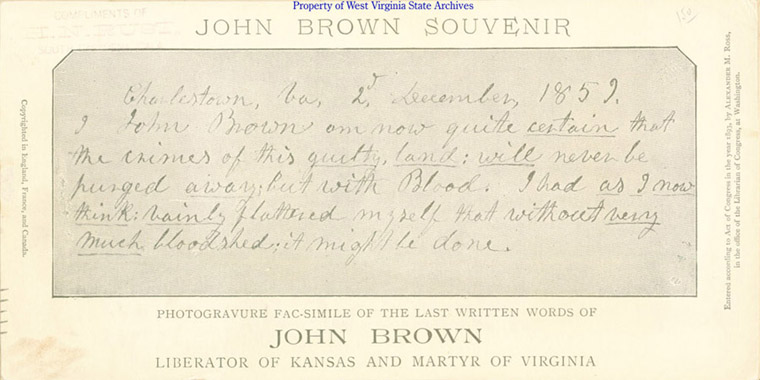 Property of West Virginia State Archives
COMPLIMENTS OF
JOHN BROWN SOUVENIR
150
Charlestown, Va, 2d, December, 1859.
I John Brown am now quite certain that
the crimes of this guilty, land: will never be
purged away; but with Blood. I had as I now
think: vainly flattered myself that without very
much bloodshed; it might be done.
Copyrighted in England, France, and Canada.
Entered according to Act of Congress in the year 1893, by ALEXANDER M. ROSS,
in the office of the Librarian of Congress, at Washington.
PHOTOGRAVURE FAC-SIMILE OF THE LAST WRITTEN WORDS OF
JOHN BROWN
LIBERATOR OF KANSAS AND MARTYR OF VIRGINIA